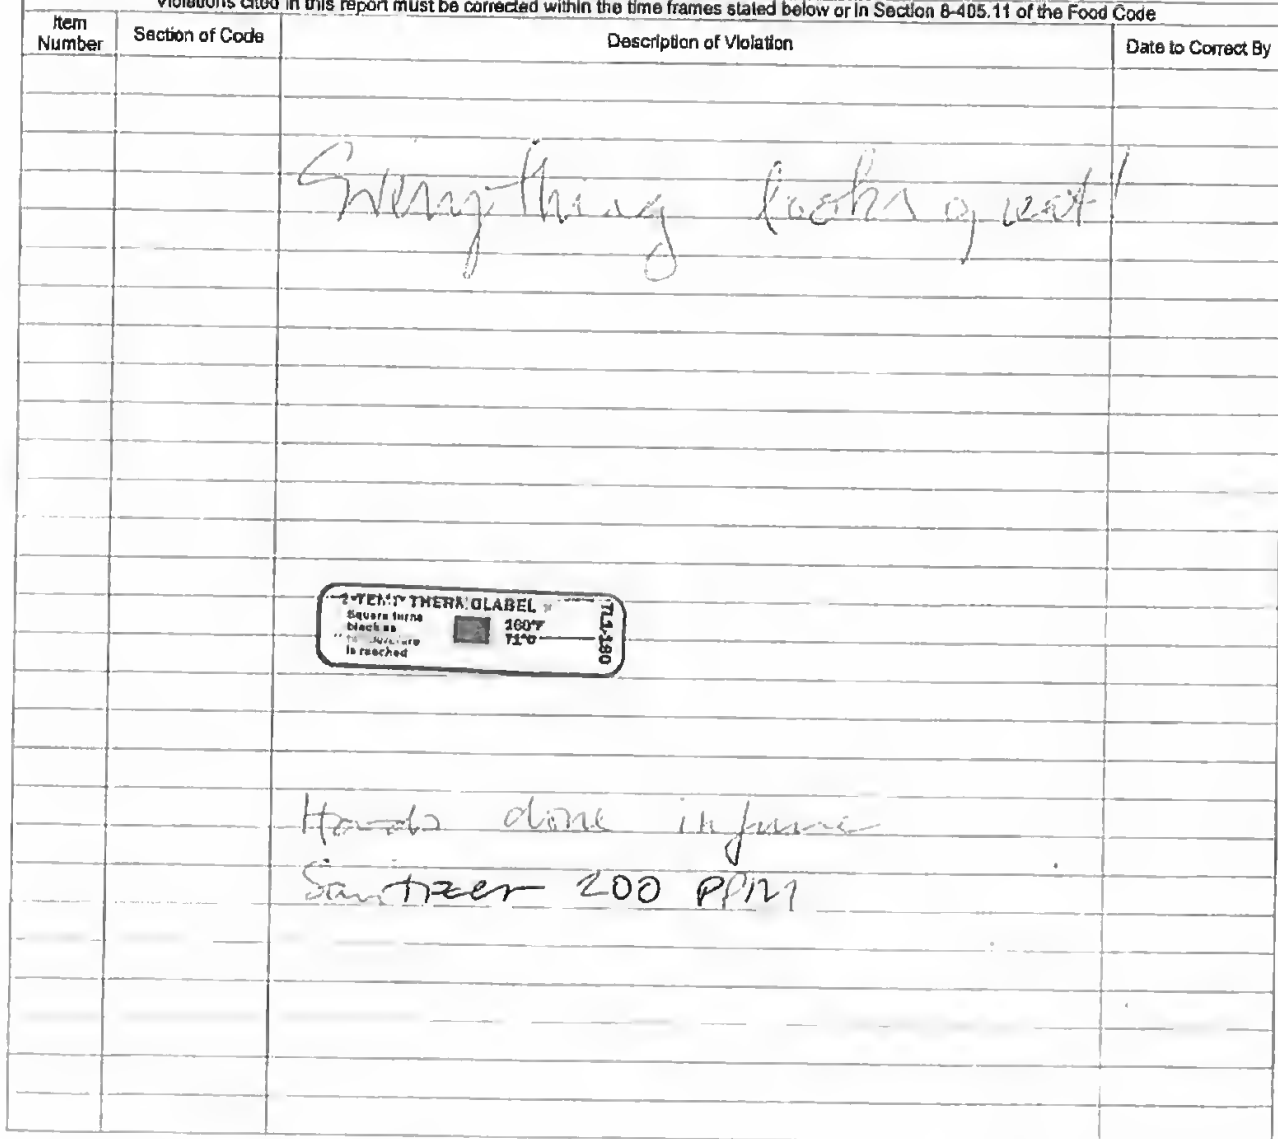 Violations cited in this report must be corrected within the time frames stated below or in Section 8-405.11 of the Food Code
Item Number
Section of Code
Description of Violation
Date to Correct By
Everything looks great!
TEMP THERMOLABEL
Square turns
black as
temperature
is reached
160°F
71°C
TL1-160
Hoods done in June
Sanitizer 200 PPM